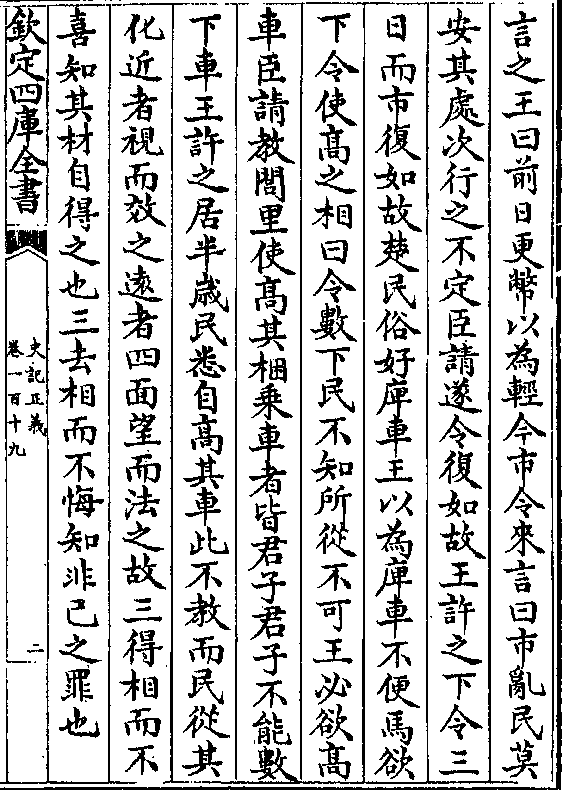 言之王曰前日更幣以為輕今市令來言曰市亂民莫
安其處次行之不定臣請遂令復如故王許之下令三
日而市復如故楚民俗好庳車王以為庳車不便馬欲
下令使髙之相曰令數下民不知所從不可王必欲髙
車臣請教閭里使髙其梱乗車者皆君子君子不能數
下車王許之居半歳民悉自髙其車此不教而民從其
化近者視而效之逺者四面望而法之故三得相而不
喜知其材自得之也三去相而不悔知非己之罪也
欽定四庫全書
史記正義
卷一百十九
二